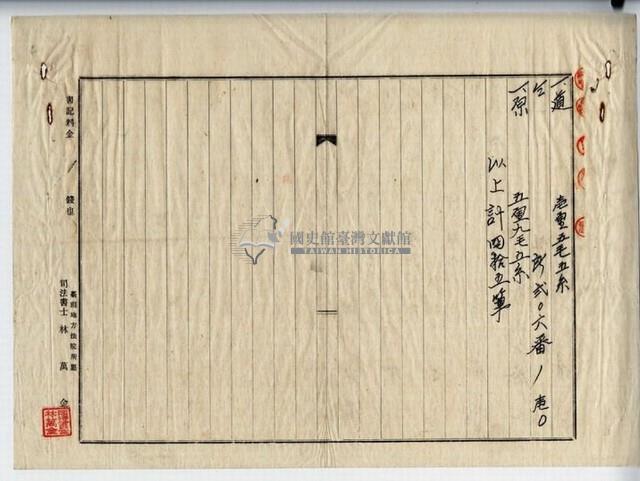 一、道
壱厘五毛五糸
仝 所弐〇六番ノ壱〇
一、原
五厘九毛五糸
以上計四拾五筆
國史館臺灣文獻館
TAIWAN HISTORICA
書記料金 錢也
臺南地方法院所屬
司法書士 林萬金